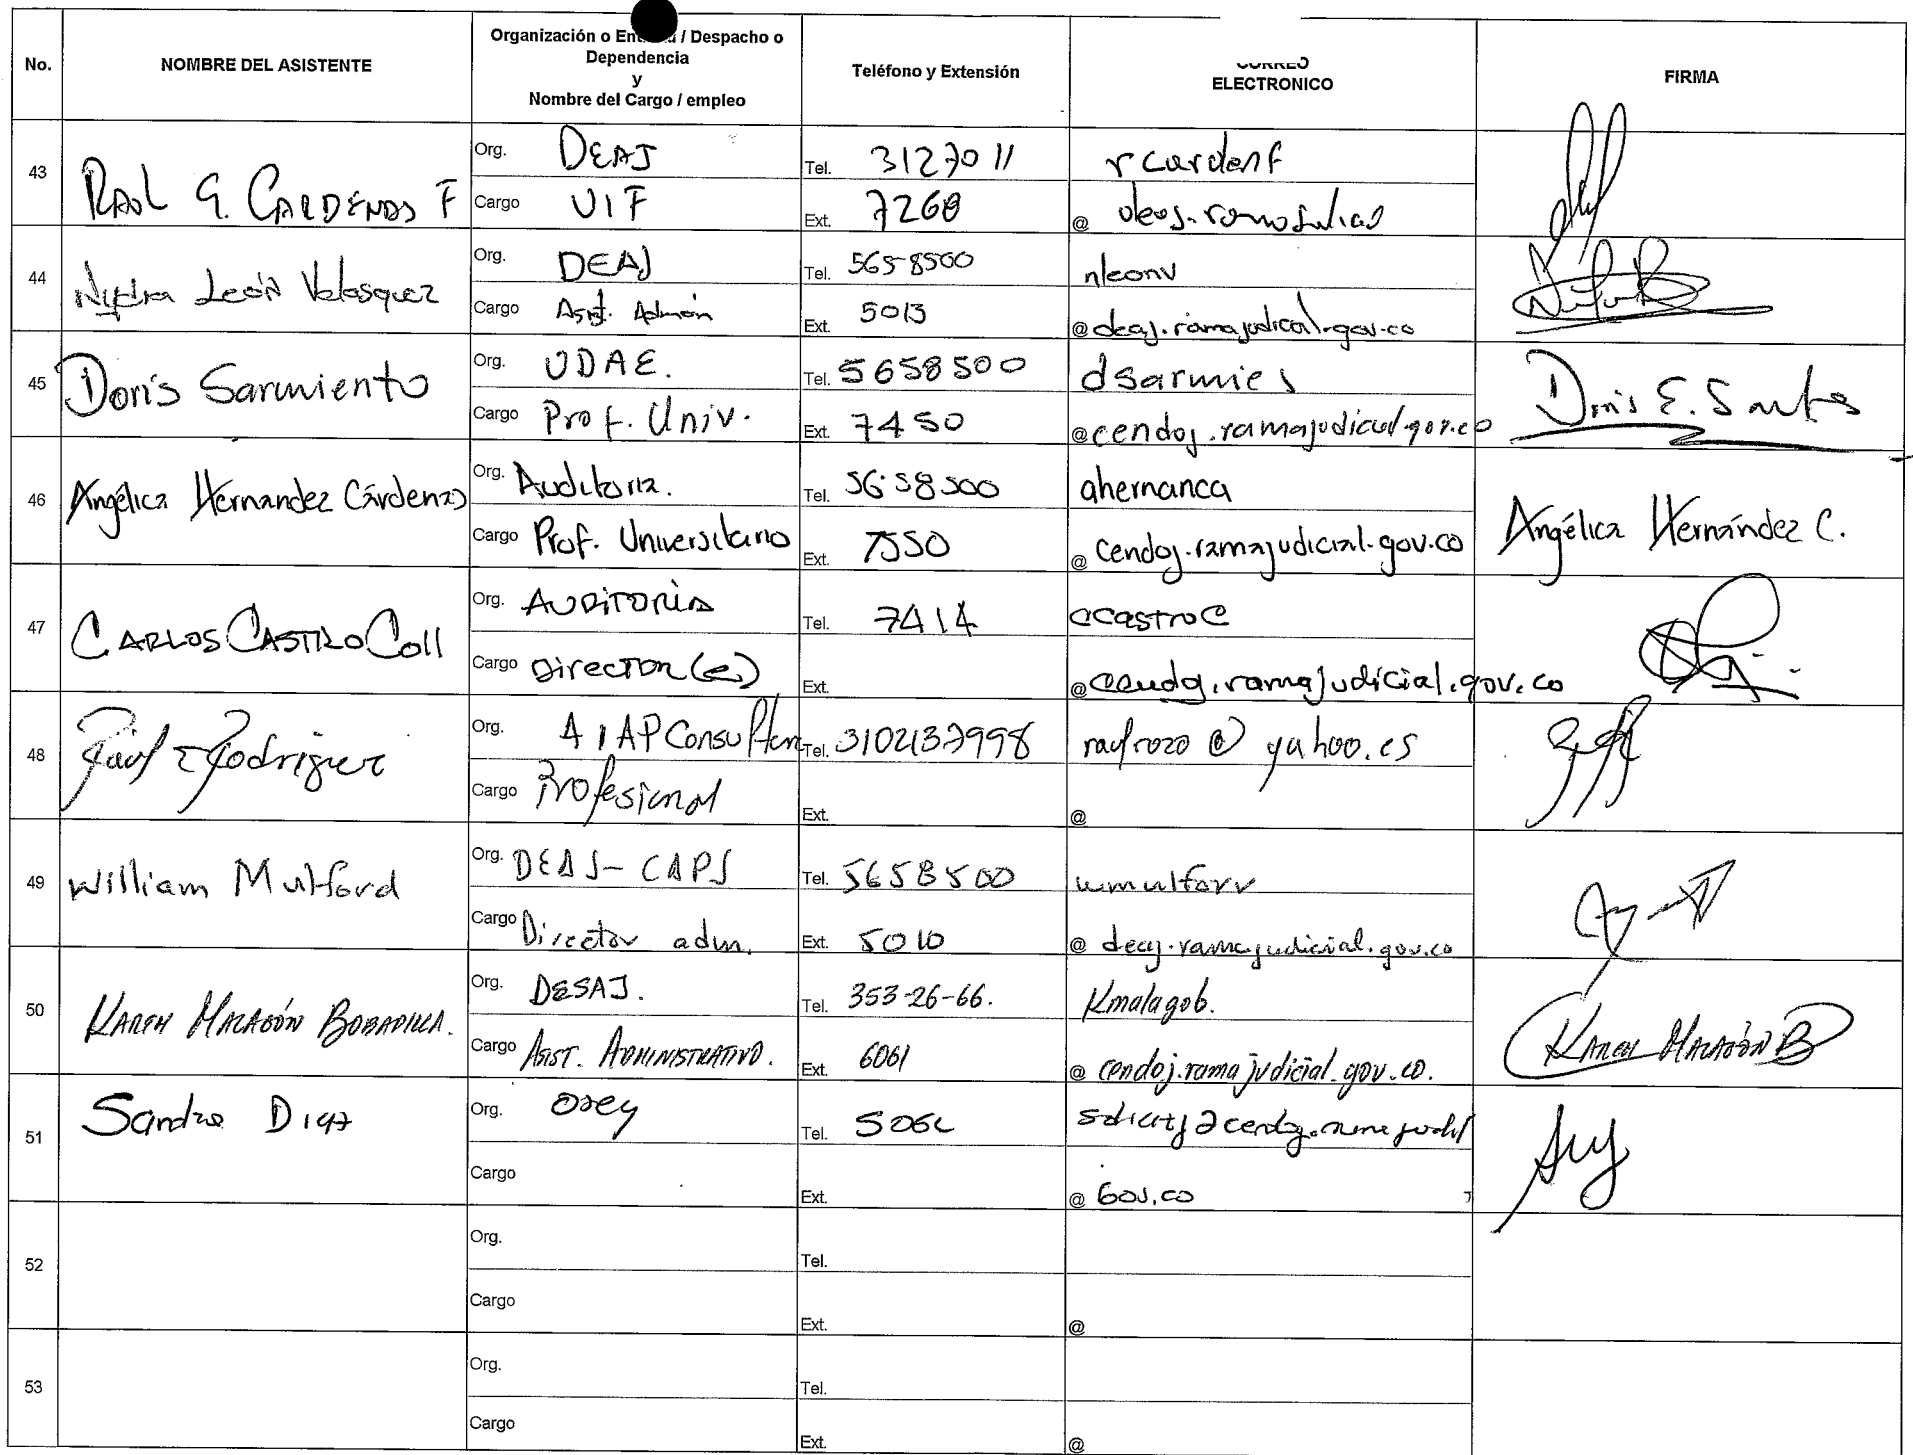 No.
NOMBRE DEL ASISTENTE
Organización o / Despacho o
Dependencia
y
Nombre del Cargo / empleo
Teléfono y Extensión
CORREO
ELECTRONICO
FIRMA
43
G. CARDENAS F
Org. DEAJ
Cargo UIF
Tel. 3127011
Ext. 7260
rcardenf
@ deaj.
44
León Velasquez
Org. DEAJ
Cargo Asist. Admón
Tel. 565-8500
Ext. 5013
nleonv
@deaj.ramajudicial.gov.co
45
Doris Sarmiento
Org. UDAE.
Cargo Prof. Univ.
Tel. 5658500
Ext. 7450
dsarmies
@cendoj.ramajudicial.gov.co
Doris E.
46
Angélica Hernandez Cárdenas
Org. Auditoria.
Cargo Prof. Universitario
Tel. 5658500
Ext. 7550
ahernanca
@ cendoj.ramajudicial.gov.co
Angélica Hernández C.
47
CARLOS CASTRO Coll
Org. AUDITORIA
Cargo DIRECTOR (e)
Tel. 7414
Ext.
ccastroc
@cendoj.ramajudicial.gov.co
48
Rodriguez
Org.
Cargo Profesional
Tel. 3102137998
Ext.
raulrozo @ yahoo.es
@
49
William Mulford
Org. DEAJ - CAPS
Cargo Director adm.
Tel. 5658500
Ext. 5010
wmulforv
@ deaj.ramajudicial.gov.co
50
KAREN MALAGÓN BOBADILLA.
Org. DESAJ.
Cargo ASIST. ADMINISTRATIVO.
Tel. 353-26-66.
Ext. 6061
Kmalagob.
@ cendoj.ramajudicial.gov.co.
KAREN MALAGÓN B
51
Sandra Diaz
Org.
Cargo
Tel.
Ext.
@ gov.co
52
Org.
Cargo
Tel.
Ext.
@
53
Org.
Cargo
Tel.
Ext.
@